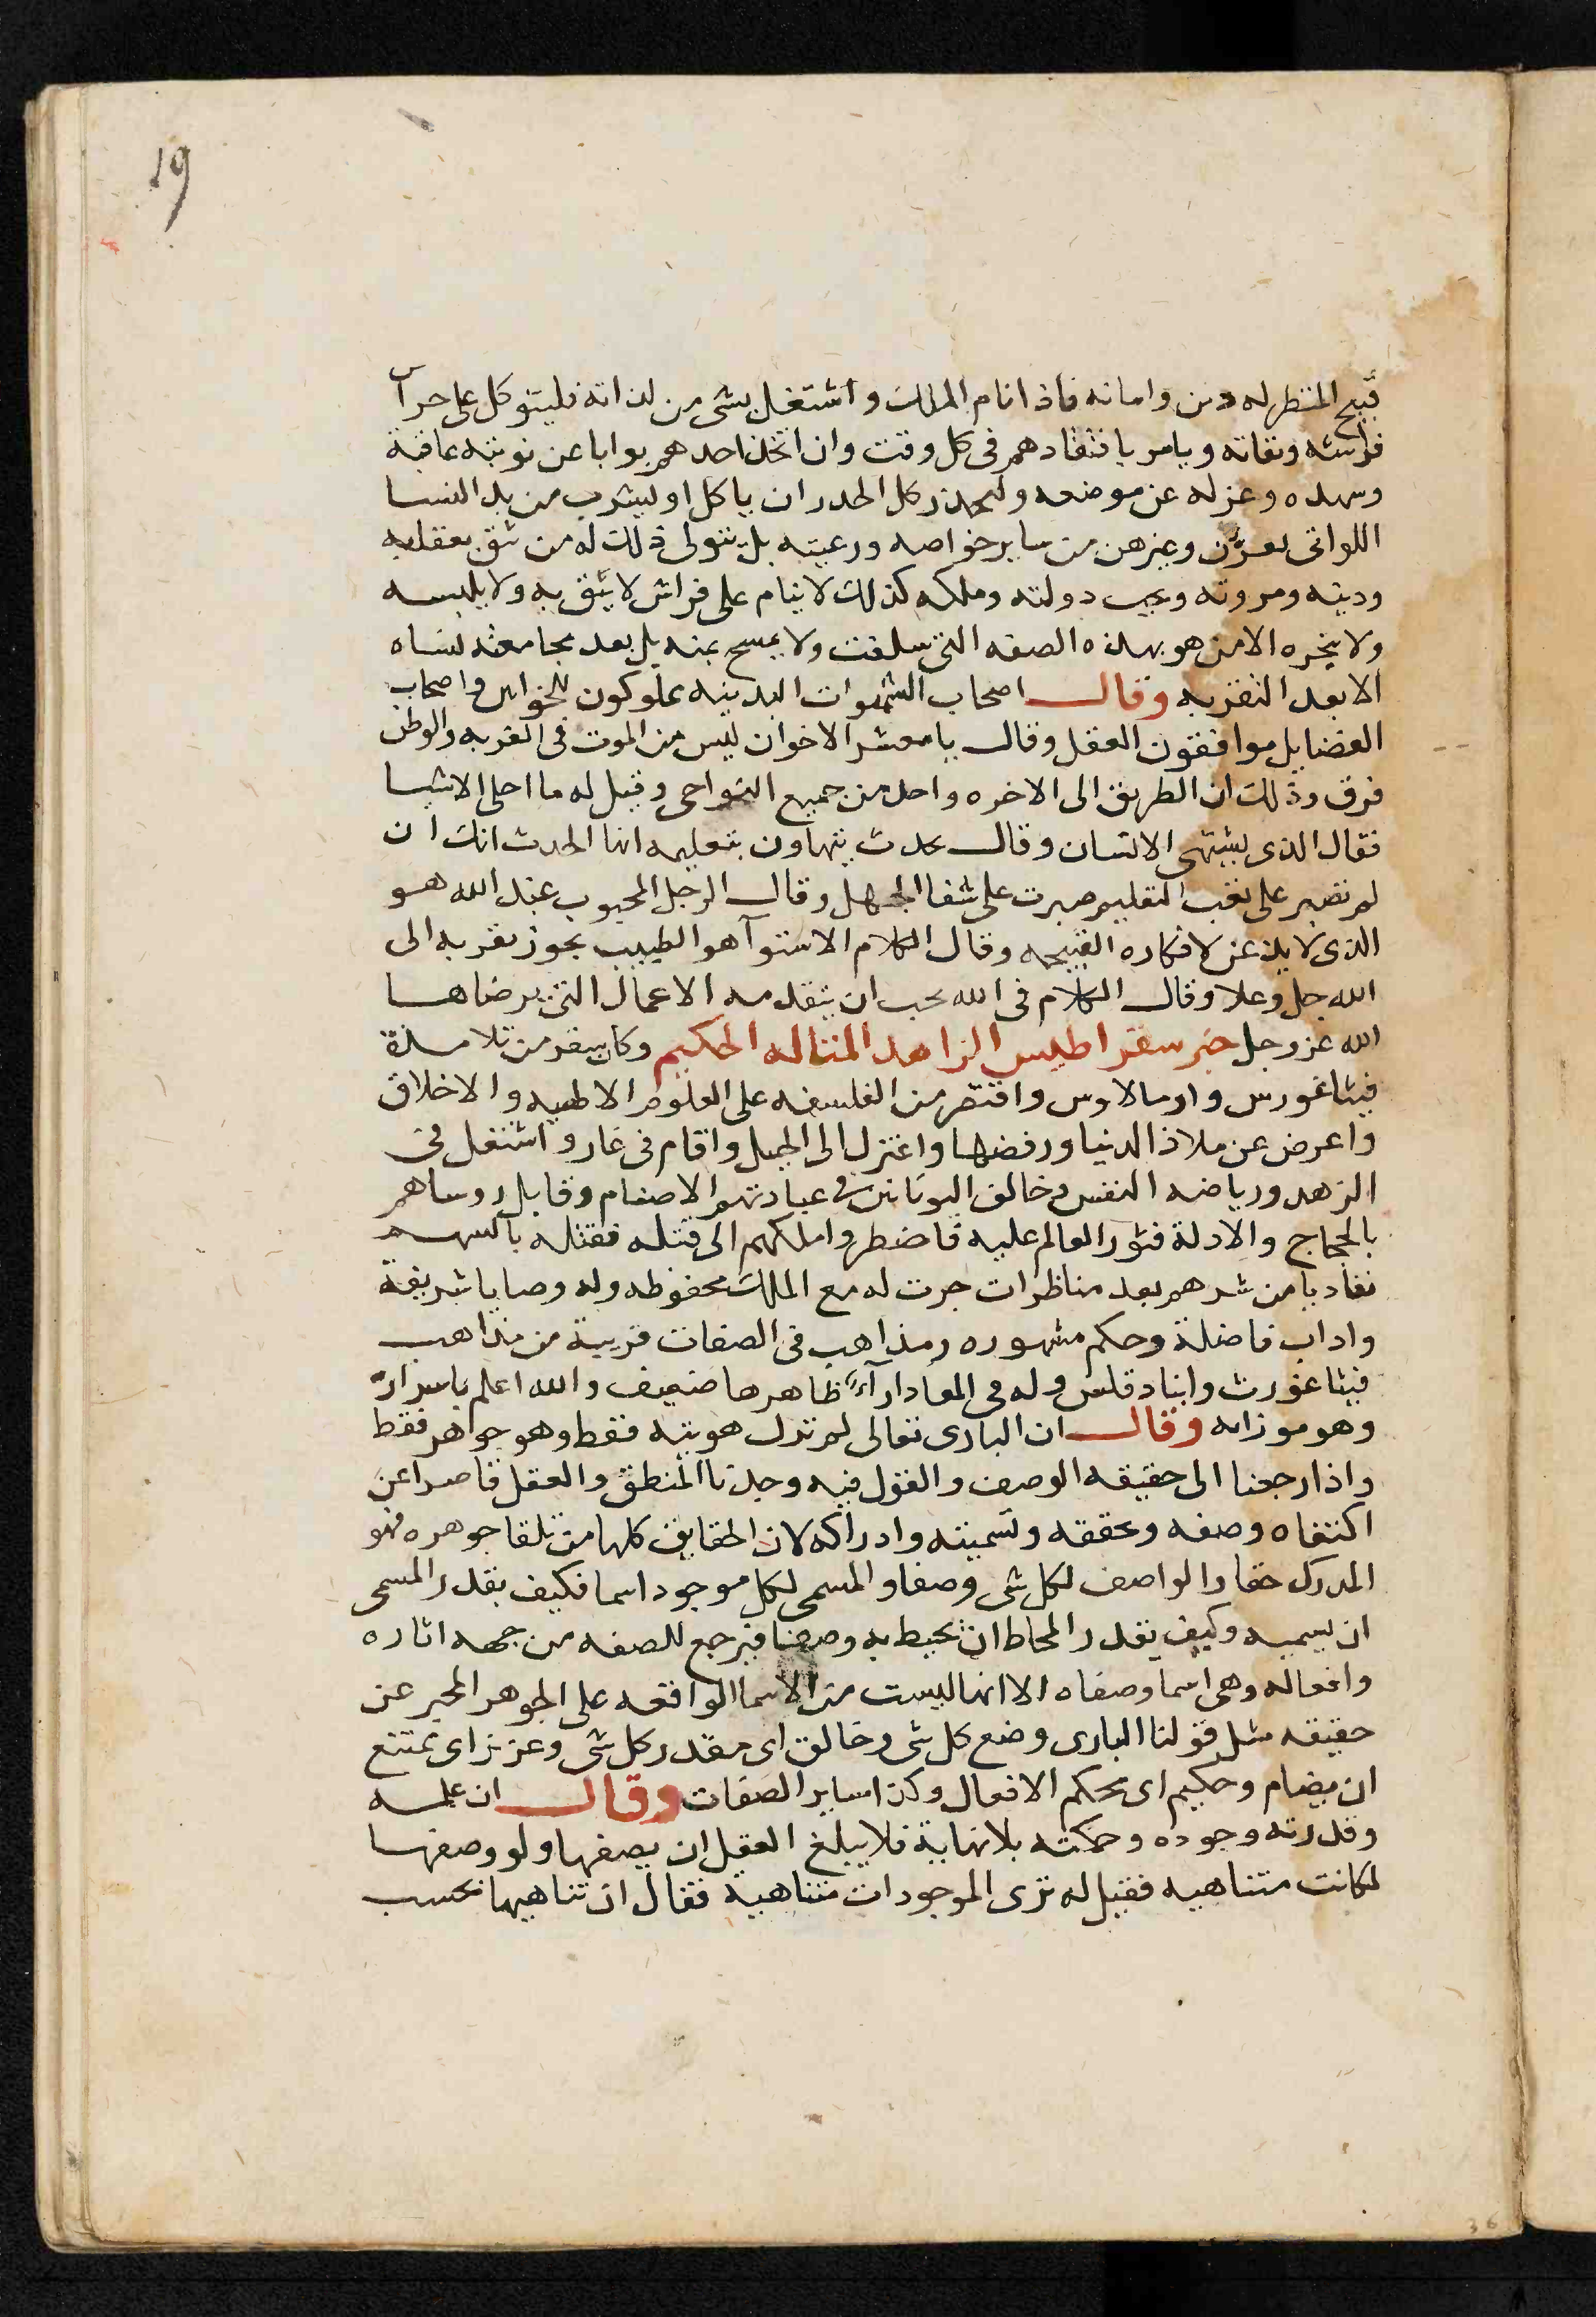 19
قبيح المنظر له دين وامانه فاذا نام الملك واشتغل بشى من لذاته فليتوكل على حرا
فراشه وثقاته ويامر بافتقادهم فى كل وقت وان اتخذ احدهم بوابا عن نوبته عاقبة
وسهده وعزله عن موضعه وليحذر كل الحدر ان ياكل او ليشرب من يد النسا
اللواتى وغيرهن من ساير خواصه ورعيته بل يتولى ذلك له من يثق بعقله
ودينه ومروته ويحب دولته وملكه كذلك لا ينام على فراش لا يثق به ولا يلبسه
ولا يبخره الا من هو بهذه الصفه التى سلفت ولا يمسح بمنديل بعد مجامعته لنساه
الا بعد التفزبه وقال اصحاب الشهوات البدنيه مملوكون للخواس واصحاب
الفضايل موافقون العقل وقال يا معشر الاخوان ليس من الموت فى الغربه والوطن
فرق وذلك ان الطريق الى الاخره واحد من جميع النواحى وقيل له ما احلى الاشيا
فقال الذى يشتهى الانسان وقال لحدث يتهاون بتعليمه ايها الحدث انك ان
لم تصبر على تعب التعليم صبرت على شقا الجهل وقال الرجل المحبوب عند الله هو
الذى لا يذعن لافكاره القبيحه وقال الكلام الاستوآ هو الطبيب بحوز بقربه الى
الله جل وعلا وقال الكلام فى الله يجب ان يتقدمه الاعمال التى يرضاها
الله عز وجل خبر سقراطيس الزاهد المتاله الحكيم وكان سقر من تلامذة
فيثاغورس وارسالاوس واقتصر من الفلسفه على العلوم الالاهيه والاخلاق
واعرض عن ملاذ الدنيا ورفضها واعتزل الى الجبل واقام فى غار واشتغل فى
الزهد ورياضه النفس وخالف اليونانين فى عبادتهم الاصنام وقابل روساهم
بالحجاج والادلة فثور العالم عليه فاضطروا ملكهم الى قتله فقتله بالسهم
تفاديا من شرهم بعد مناظرات جرت له مع الملك محفوظه وله وصايا شريفة
واداب فاضلة وحكم مشهوره ومذاهب فى الصفات قريبة من مذاهب
فيثاغورث وابنادقلس وله فى المعاد ارآء ظاهرها ضعيف والله اعلم باسراره
وهو موزانه وقال ان البارى تعالى لم تزل هويته فقط وهو جواهر فقط
واذا رجعنا الى حقيقه الوصف والقول فيه وجدنا المنطق والعقل قاصرا عن
اكتفاه وصفه وتحققه وتسميته وادراكه لان الحقايق كلها من تلقا جوهره فهو
المدرك حقا والواصف لكل شى وصفا والمسمى لكل موجود اسما فكيف يقدر المسمى
ان يسميه وكيف يقدر المحاط ان يحيط به وصفا فيرجع للصفه من جهه اثاره
وافعاله وهى اسما وصفاه الا انها ليست من الاسما الواقعه على الجوهر المخبر عن
حقيقه مثل قولنا البارى وضع كل شى وخالق اى مقدر كل شى وعزيز اى ممتنع
ان يضام وحكيم اى محكم الافعال وكذا ساير الصفات وقال ان علمه
وقدرته وجوده وحكمته بلا نهاية فلا يبلغ العقل ان يصفها ولو وصفها
لكانت متناهيه فقيل له نرى الموجودات متناهية فقال ان تناهيها بحسب
36